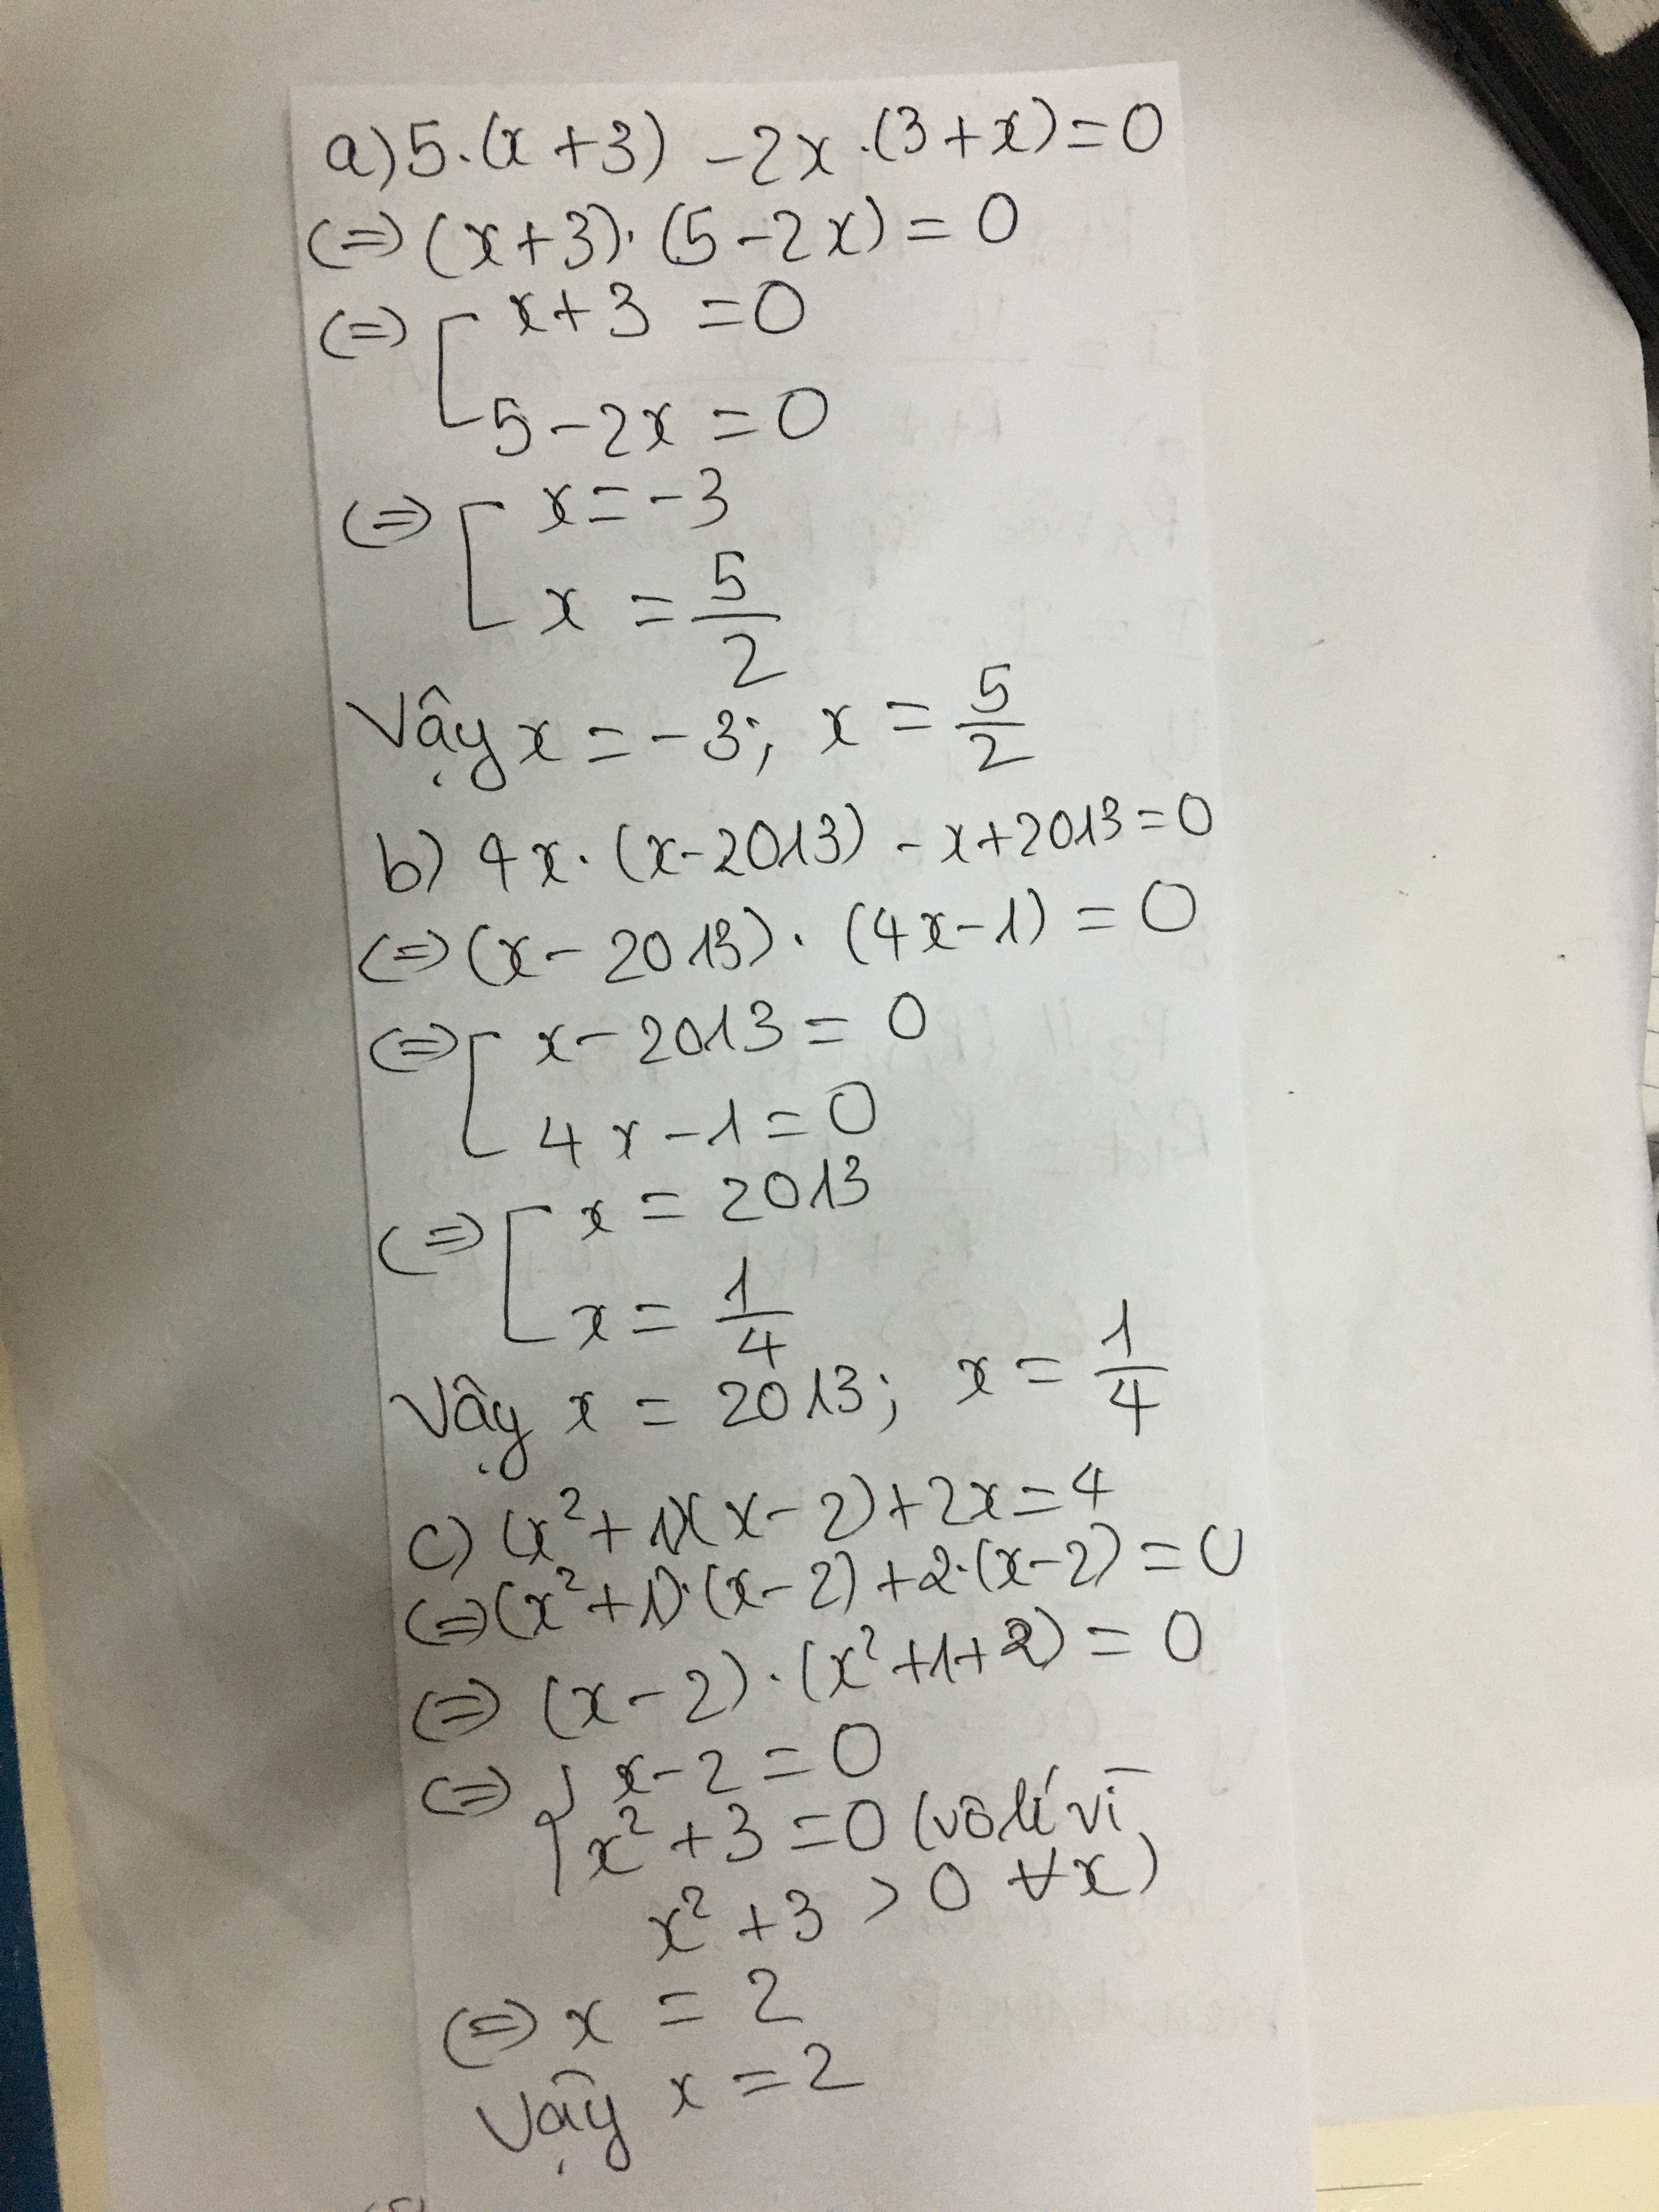 a) 5.(x+3) - 2x.(3+x)=0
(=) (x+3).(5-2x)=0
(=) [ x+3 =0
5-2x=0
(=) [ x=-3
x = 5/2
Vậy x=-3; x = 5/2
b) 4x.(x-2013) - x+2013=0
(=) (x-2013).(4x-1)=0
(=) [ x-2013=0
4x-1=0
(=) [ x=2013
x=1/4
Vậy x=2013; x=1/4
c) (x²+1)(x-2)+2x=4
(=) (x²+1).(x-2)+2.(x-2)=0
(=) (x-2).(x²+1+2)=0
(=) { x-2=0
x²+3=0 (vô lí vì
x²+3>0 ∀x)
(=) x=2
Vậy x=2